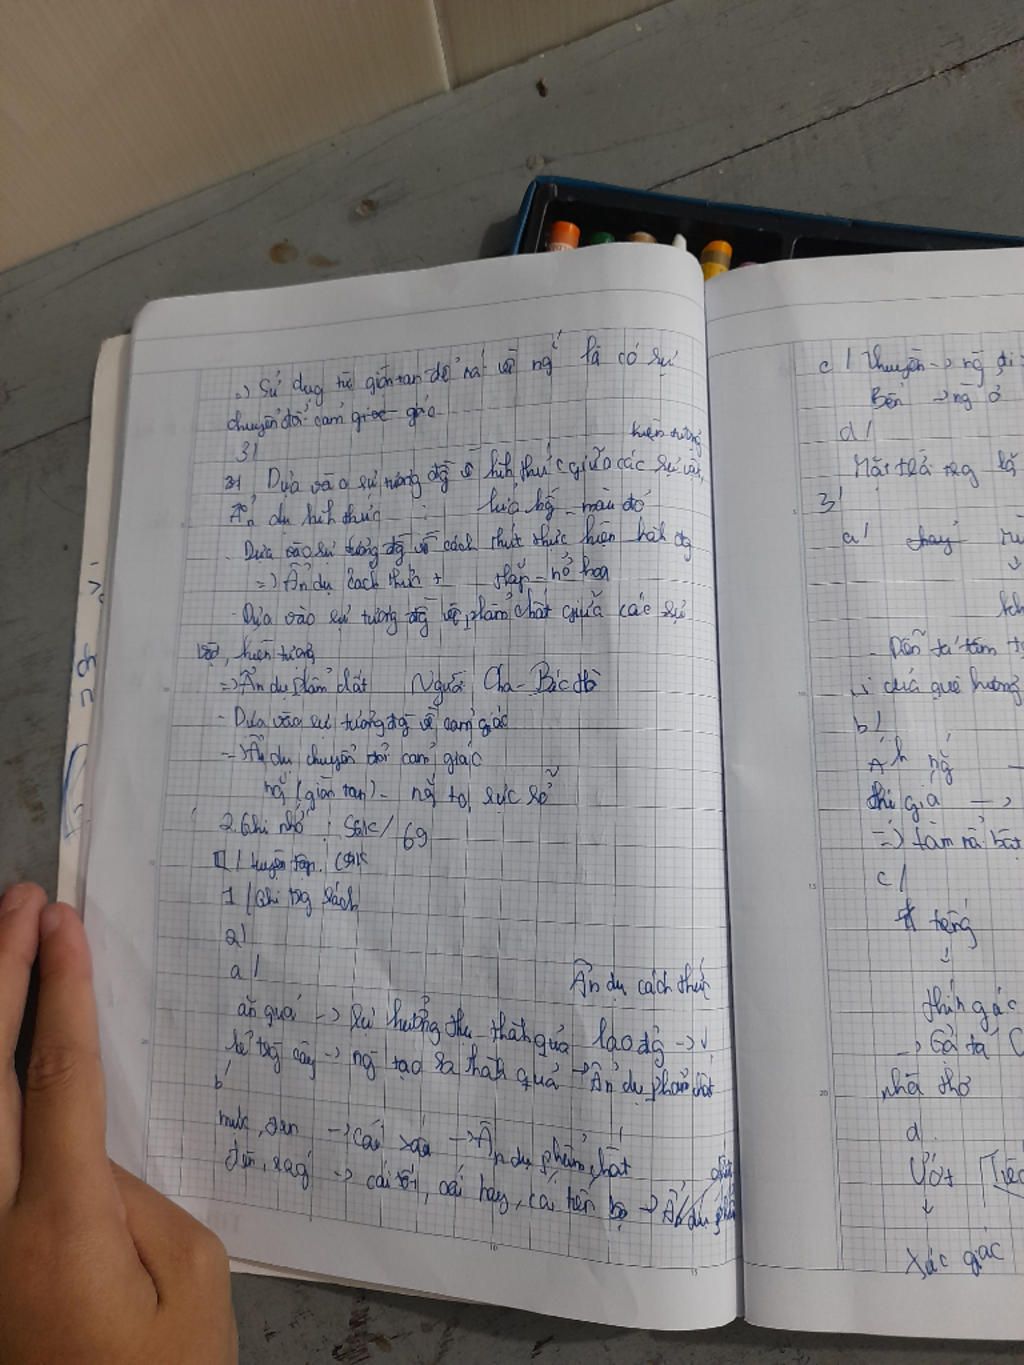 => Sử dụg từ giòn tan để nói về ng´ là có sự
chuyển đổi cảm giác giác
3/
3/ Dựa vào sự tương đg` về hình thức giữa các sự vật,
hiện tượng
Ẩn dụ hình thức : lửa hồg - màu đỏ
- Dựa vào sự tương đg` về cách thức thực hiện hành đg
=> Ẩn dụ cách thức + thắp - nở hoa
- Dựa vào sự tương đg` về phẩm chất giữa các sự
vật, hiện tượng
=> Ẩn dụ phẩm chất Người Cha - Bác Hồ
- Dựa vào sự tương đg` về cảm giác
=> Ẩn dụ chuyển đổi cảm giác
nắg (giòn tan) - nắg to, rực rỡ
2. Ghi nhớ : SGK/69
II/ Luyện tập. (SGK
1/ Ghi trg sách
2/
a/
Ẩn dụ cách thức
ăn quả -> sự hưởng thụ thành quả lao độg ->
kẻ trồg cây -> ng` tạo ra thành quả -> Ẩn dụ phẩm chất
b/
mực, đen -> cái xấu -> Ẩn dụ phẩm chất
đèn, ság -> cái tốt, cái hay, cái tiến bộ -> Ẩn dụ phẩm
c/ Thuyền -> ng` đi
Bến -> ng` ở
d/
Mặt trời trg lăg
3/
a/ chảy
↓
của quê hương
b/
Ánh nắg
thì giả ->
=> làm nổi bật
c/
tiếng
↓
thính giác
-> Gợi tả
nhà thơ
d.
Ướt
↓
Xúc giác